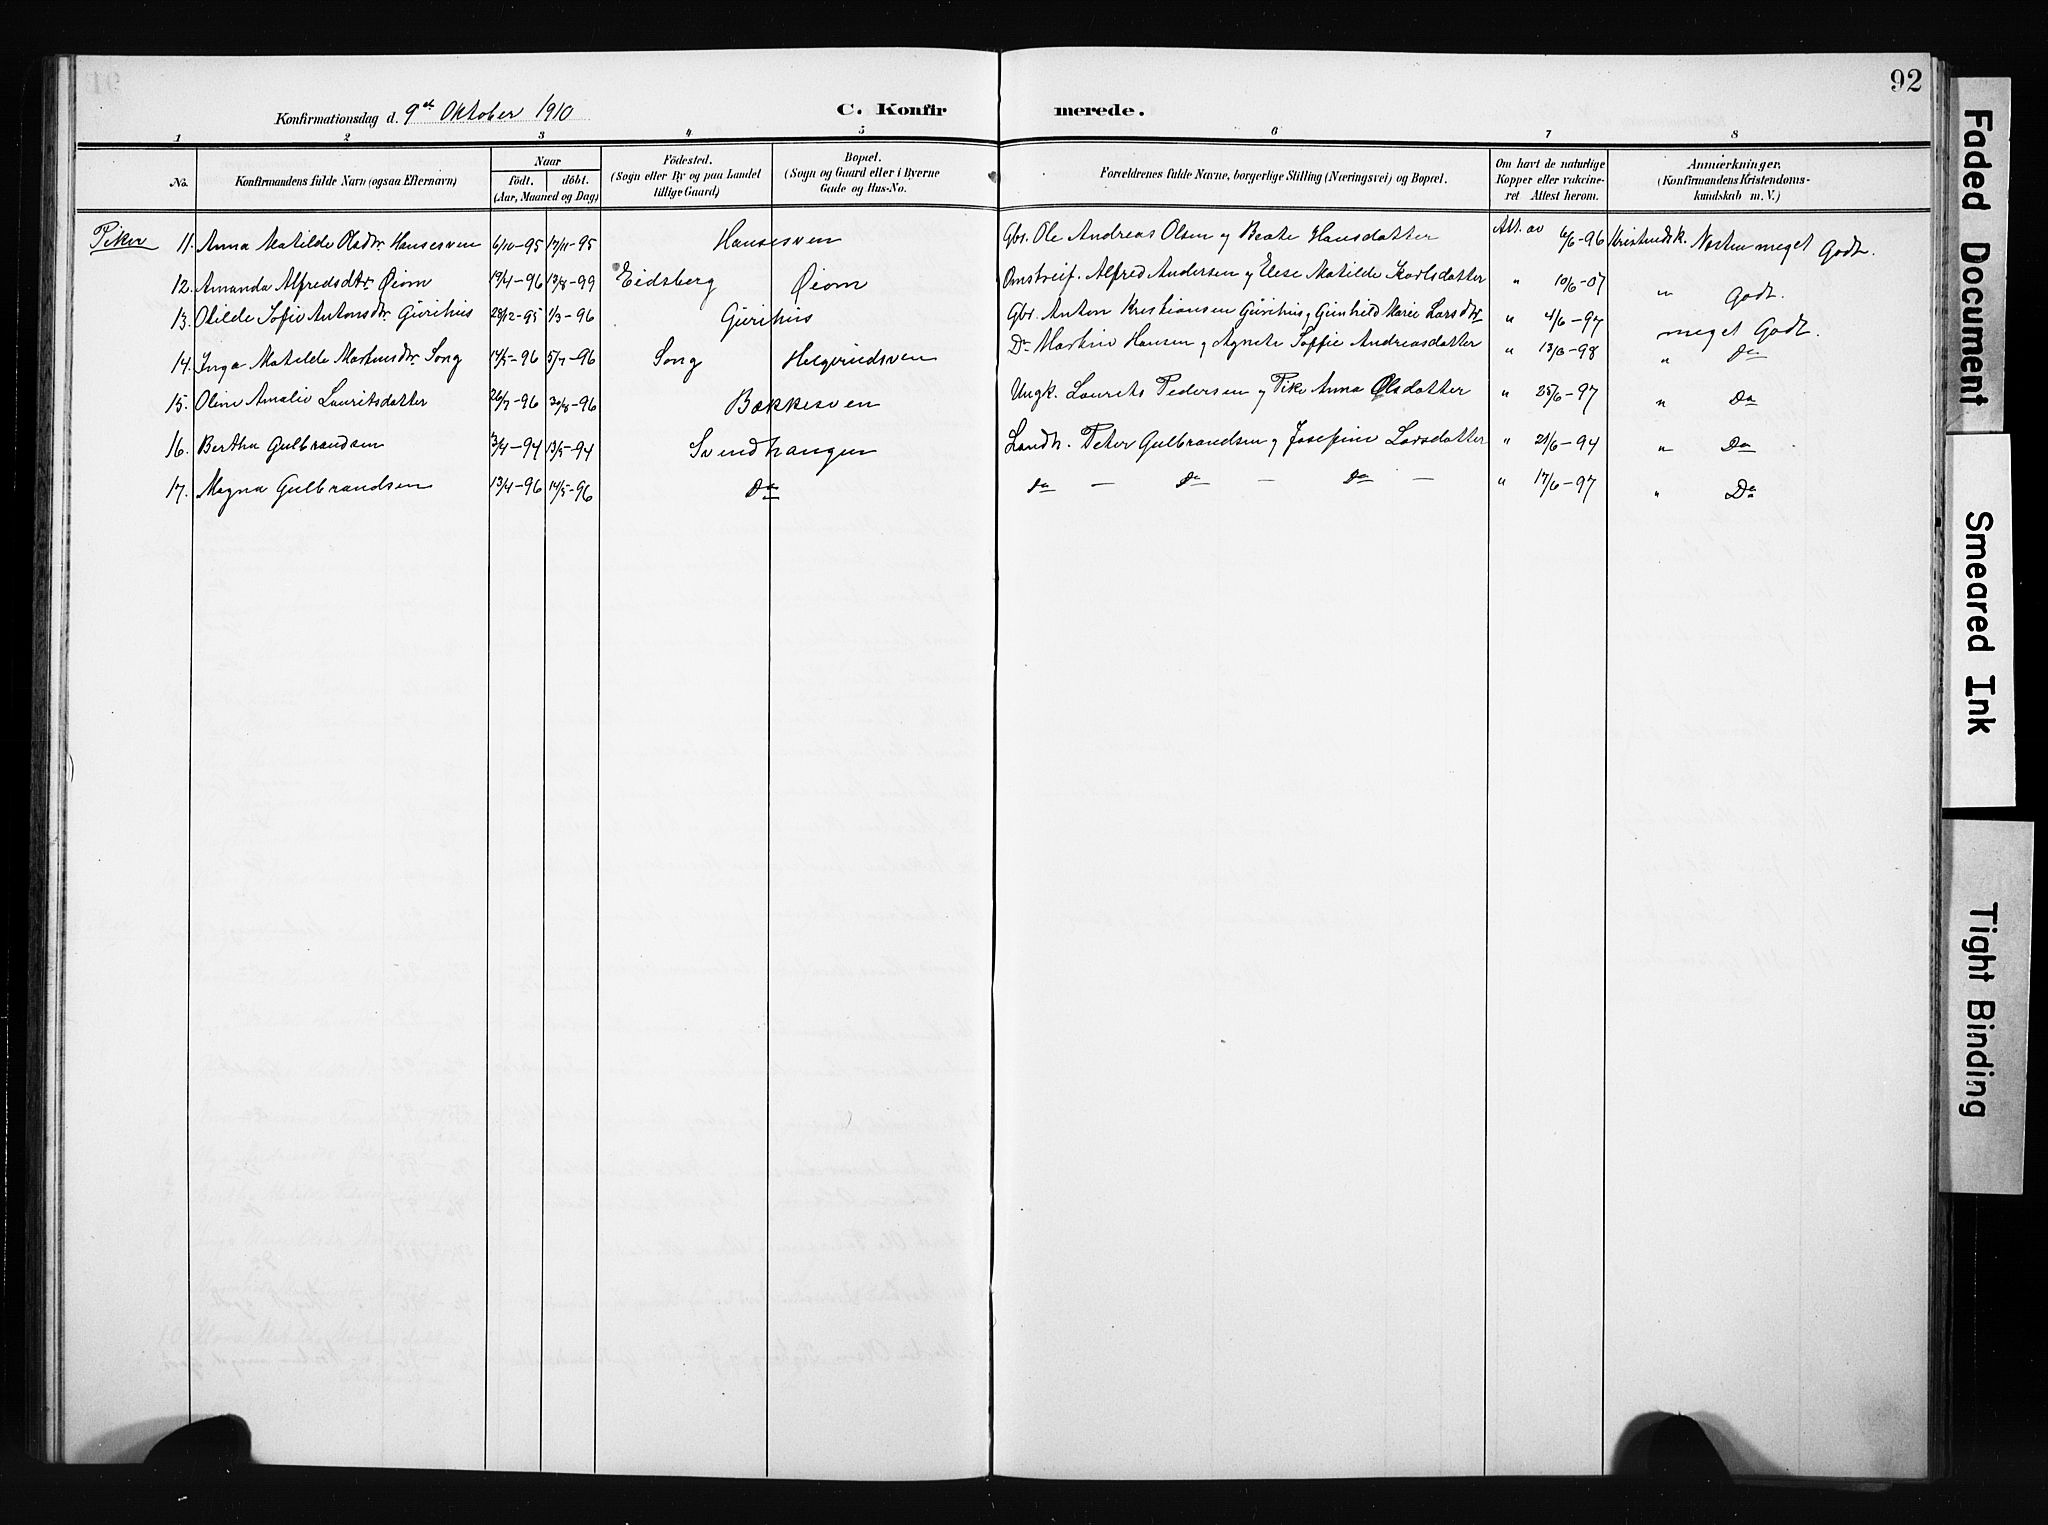 92
Konfirmationsdag d. 9de Oktober 1910
C. Konfirmerede.
1 2 3 4 5 6 7 8
No. Konfirmandens fulde Navn (ogsaa Efternavn) Naar født. døbt. (Aar, Maaned og Dag) Fødested. (Sogn eller By og paa Landet tillige Gaard) Bopæl. (Sogn og Gaard eller i Byerne Gade og Hus-No. Forældrenes fulde Navne, borgerlige Stilling (Næringsvei) og Bopæl. Om havt de naturlige Kopper eller vakcineret Attest herom. Anmærkninger. (Konfirmandens Kristendomskundskab m. V.)
Piker 11. Anna Matilde Olsdtr. Hansesven 6/10-95 17/11-95 Hansesven Gbr. Ole Andreas Olsen og Beate Hansdatter Att. av 6/6-96 Kristendsk. Næsten meget Godt.
12. Amanda Alfredsdtr. Øiom 19/4-96 13/8-99 Eidsberg Øiom Omstreif. Alfred Andersen og Elese Matilde Karlsdatter " 10/6-07 " Godt.
13. Otilde Sofie Antonsdtr. Gurihus 28/12-95 1/3-96 Gurihus Gbr. Anton Kristiansen Gurihus og Gunhild Marie Larsdtr " 4/6-97 meget Godt.
14. Inga Matilde Martinsdtr. Song 14/5-96 5/7-96 Song Helgerudsven Do Martin Hansen og Agnete Soffie Andreasdatter " 13/6-98 " Do
15. Oline Amalie Lauritsdatter 26/7-96 30/8-96 Bækkesven Ungk. Laurits Pedersen og Pike Anna Olsdatter " 25/6-97 " Do
16. Bertha Gulbrandsen 3/4-94 13/5-94 Svendhaugen Landh. Peter Gulbrandsen og Josefine Larsdatter " 21/6-94 " Do
17. Magna Gulbrandsen 13/4-96 14/5-96 Do do - Do - Do - " 17/6-97 " Do
Faded Document
Smeared Ink
Tight Binding